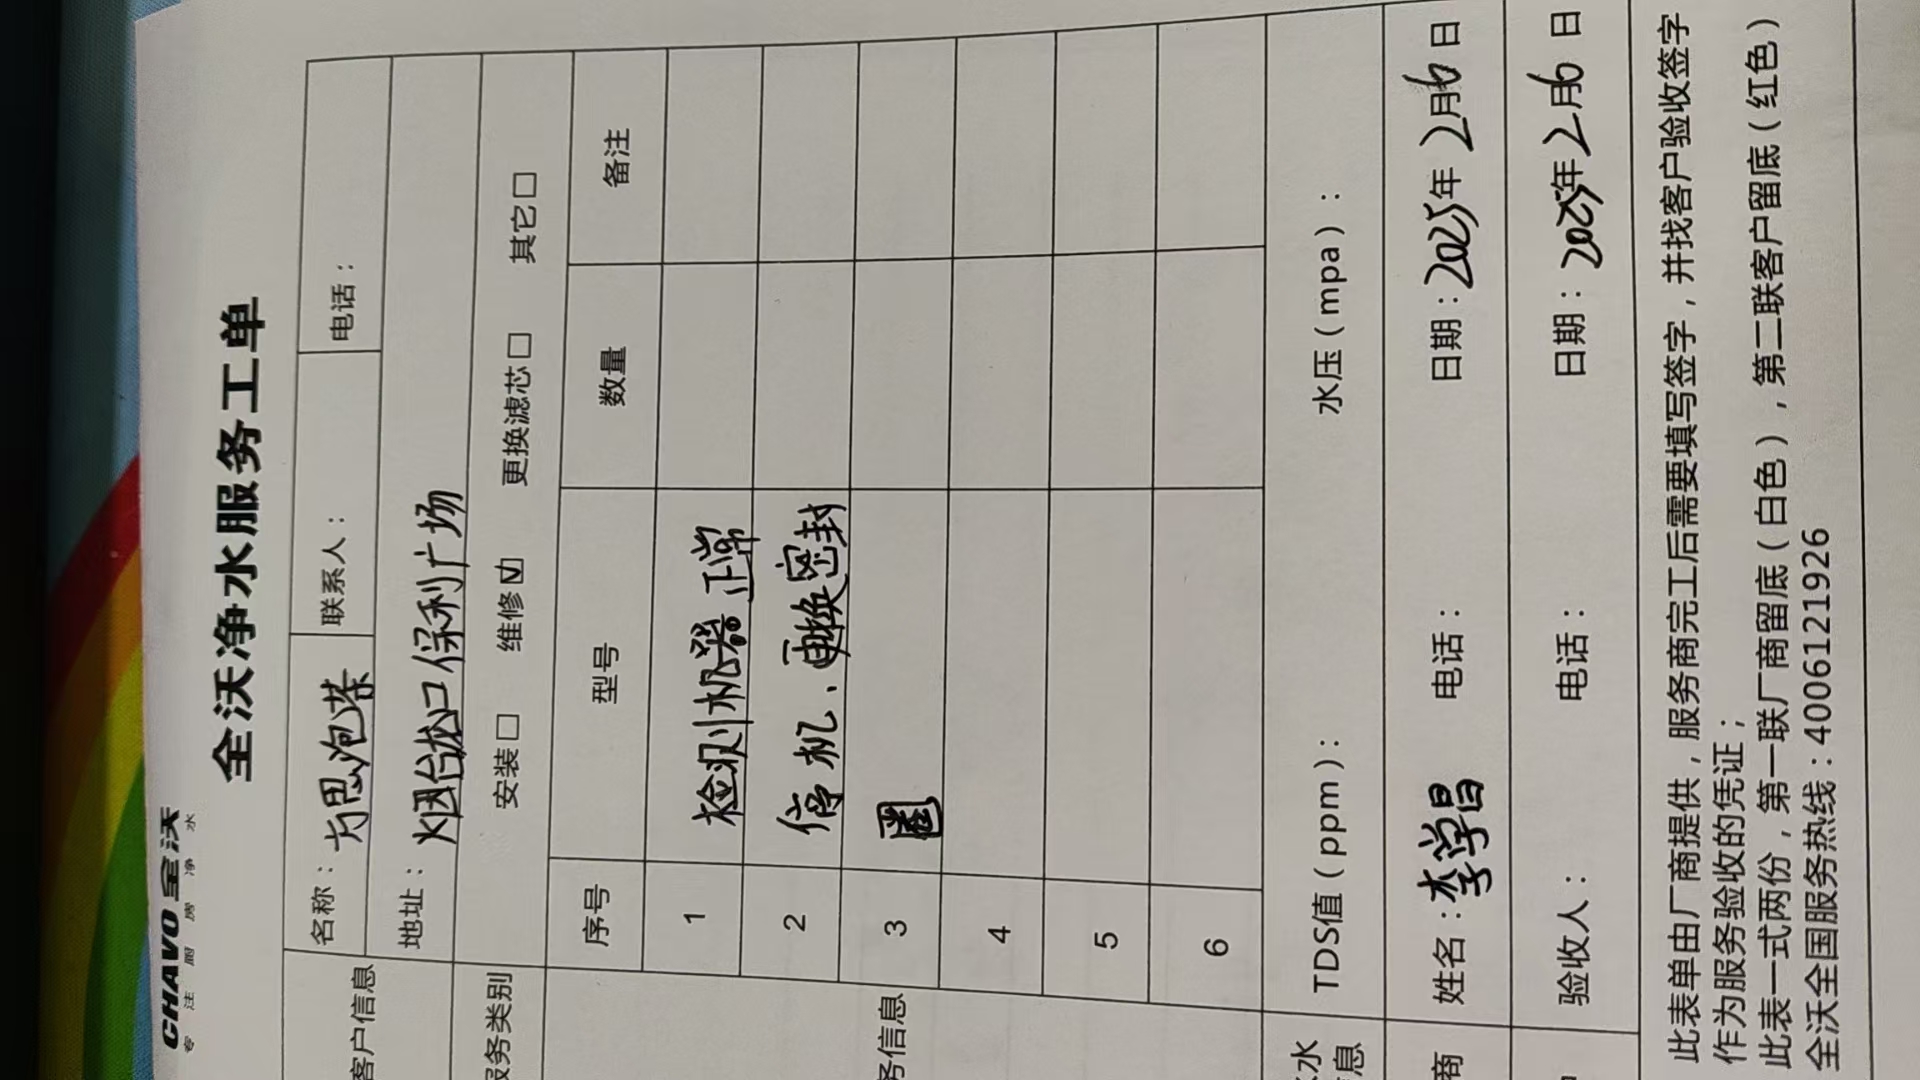 CHAVO 全沃
专 注 厨 房 净 水
全沃净水服务工单
客户信息
名称：方思泡菜 联系人： 电话：
地址：烟台龙口保利广场
服务类别 安装□ 维修☑ 更换滤芯□ 其它□
序号 型号 数量 备注
1 检测机器正常
2 停机、更换密封
3 圈
4
5
6
务信息
水
息
TDS值（ppm）： 水压（mpa）：
商 姓名：李学昌 电话： 日期：2025年2月6日
验收人： 电话： 日期：2025年2月6日
此表单由厂商提供，服务商完工后需要填写签字，并找客户验收签字
作为服务验收的凭证；
此表一式两份，第一联厂商留底（白色），第二联客户留底（红色）
全沃全国服务热线：4006121926